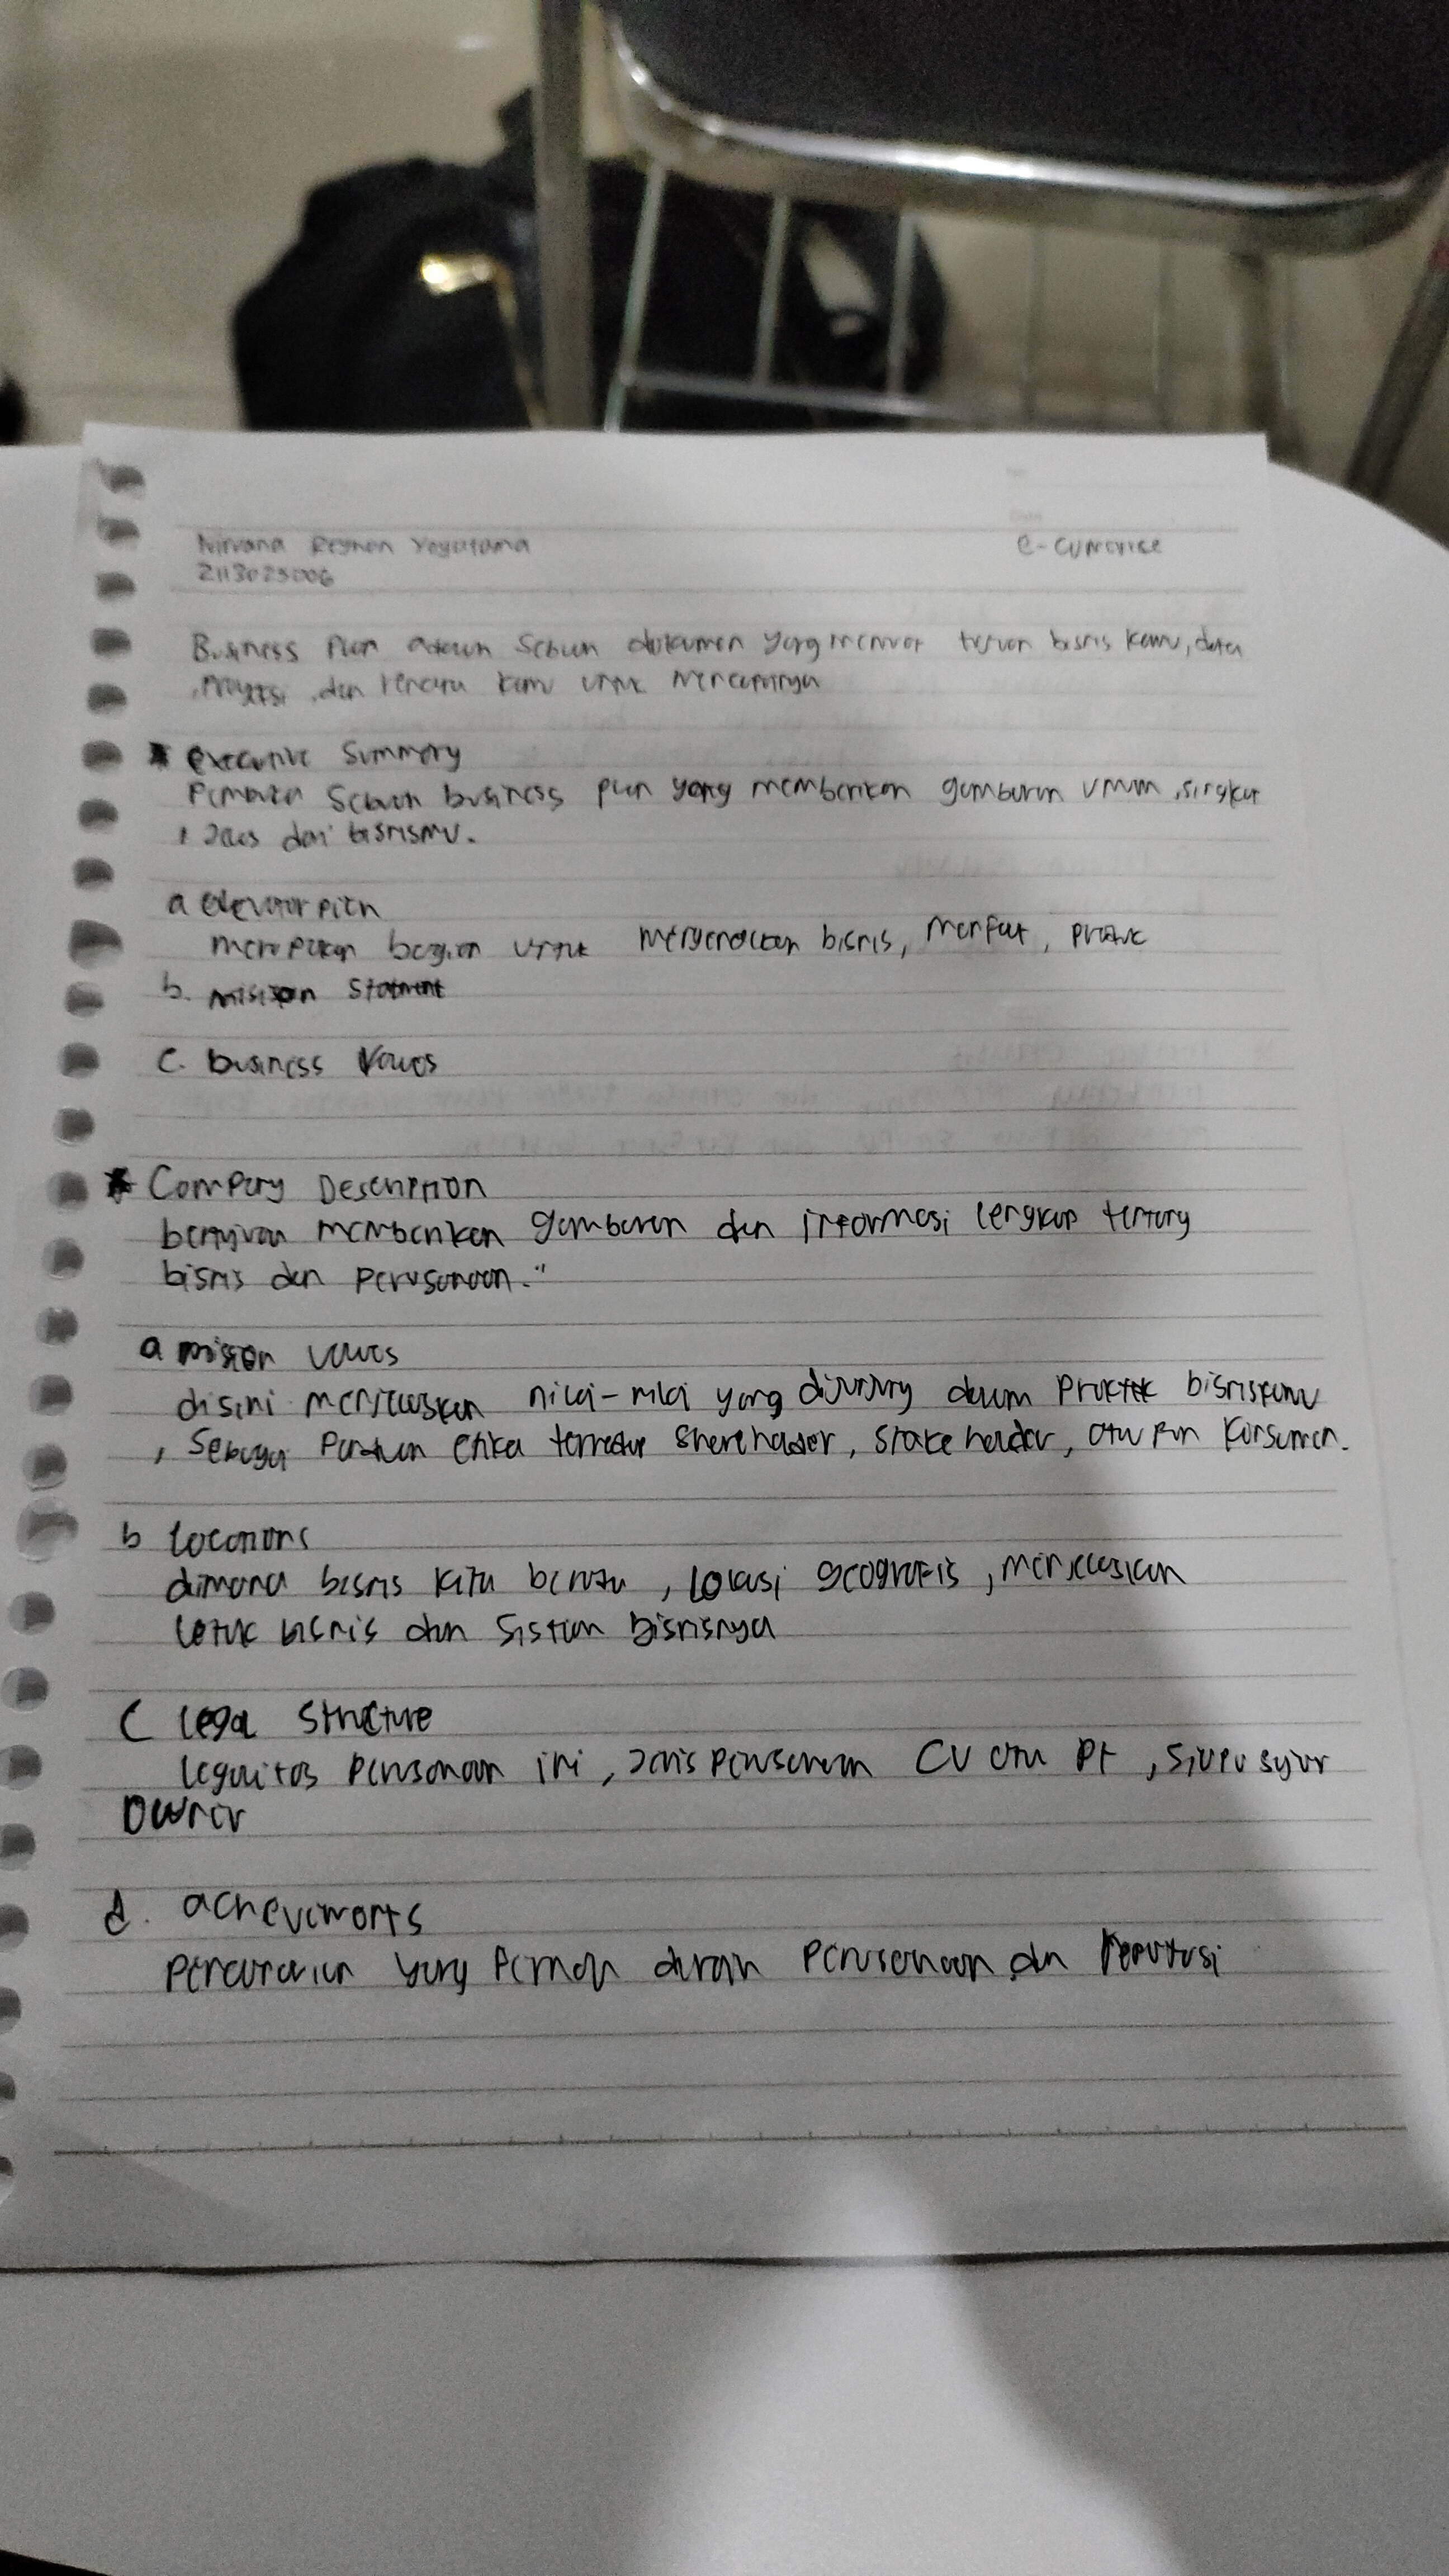 Nirvana Reynon Yogatama
e-cumerise
2113025006
Business Plan adalah Sebuah dokumen yang memuat tujuan bisnis kamu, data
, Proyeksi, dan rencana kamu untuk mencapainya
* executive Summary
Pembuka Sebuah business plan yang memberikan gambaran umum, singkat
, Jelas dari bisnismu.
a elevator pitch
merupakan bagian untuk mengenalkan bisnis, manfaat, produk
b. mission Statment
c. business Values
* Company Description
bertujuan memberikan gambaran dan informasi lengkap tentang
bisnis dan perusahaan."
a mission values
disini menjelaskan nilai-nilai yang dijunjung dalam Praktek bisnis kamu
, Sebagai Panduan etika terhadap Shareholder, Stakeholder, atau pun Konsumen.
b locations
dimana bisnis kita berada, lokasi geografis, menjelaskan
letak bisnis dan Sistem bisnisnya
C legal Structure
legalitas Perusahaan ini, Jenis perusahaan CV atau Pt, Siapa
Owner
d. acheviments
Pencapaian yang Pernah diraih Perusahaan dan Reputasi